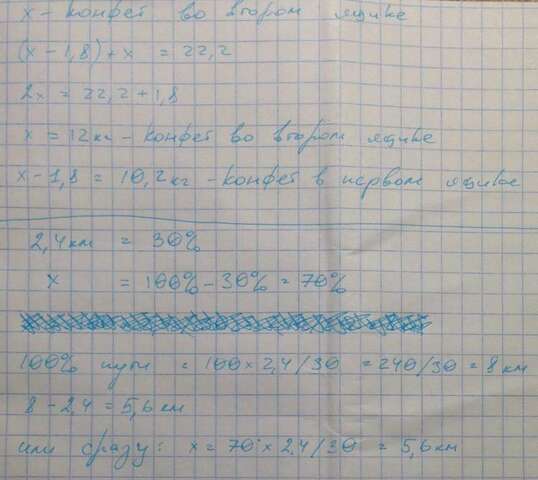 x - конфет во втором ящике
(x - 1,8) + x = 22,2
2x = 22,2 + 1,8
x = 12 кг - конфет во втором ящике
x - 1,8 = 10,2 кг - конфет в первом ящике
2,4 км = 30%
x = 100% - 30% = 70%
100% пути = 100 × 2,4 / 30 = 240/30 = 8 км
8 - 2,4 = 5,6 км
или сразу: x = 70 × 2,4 / 30 = 5,6 км